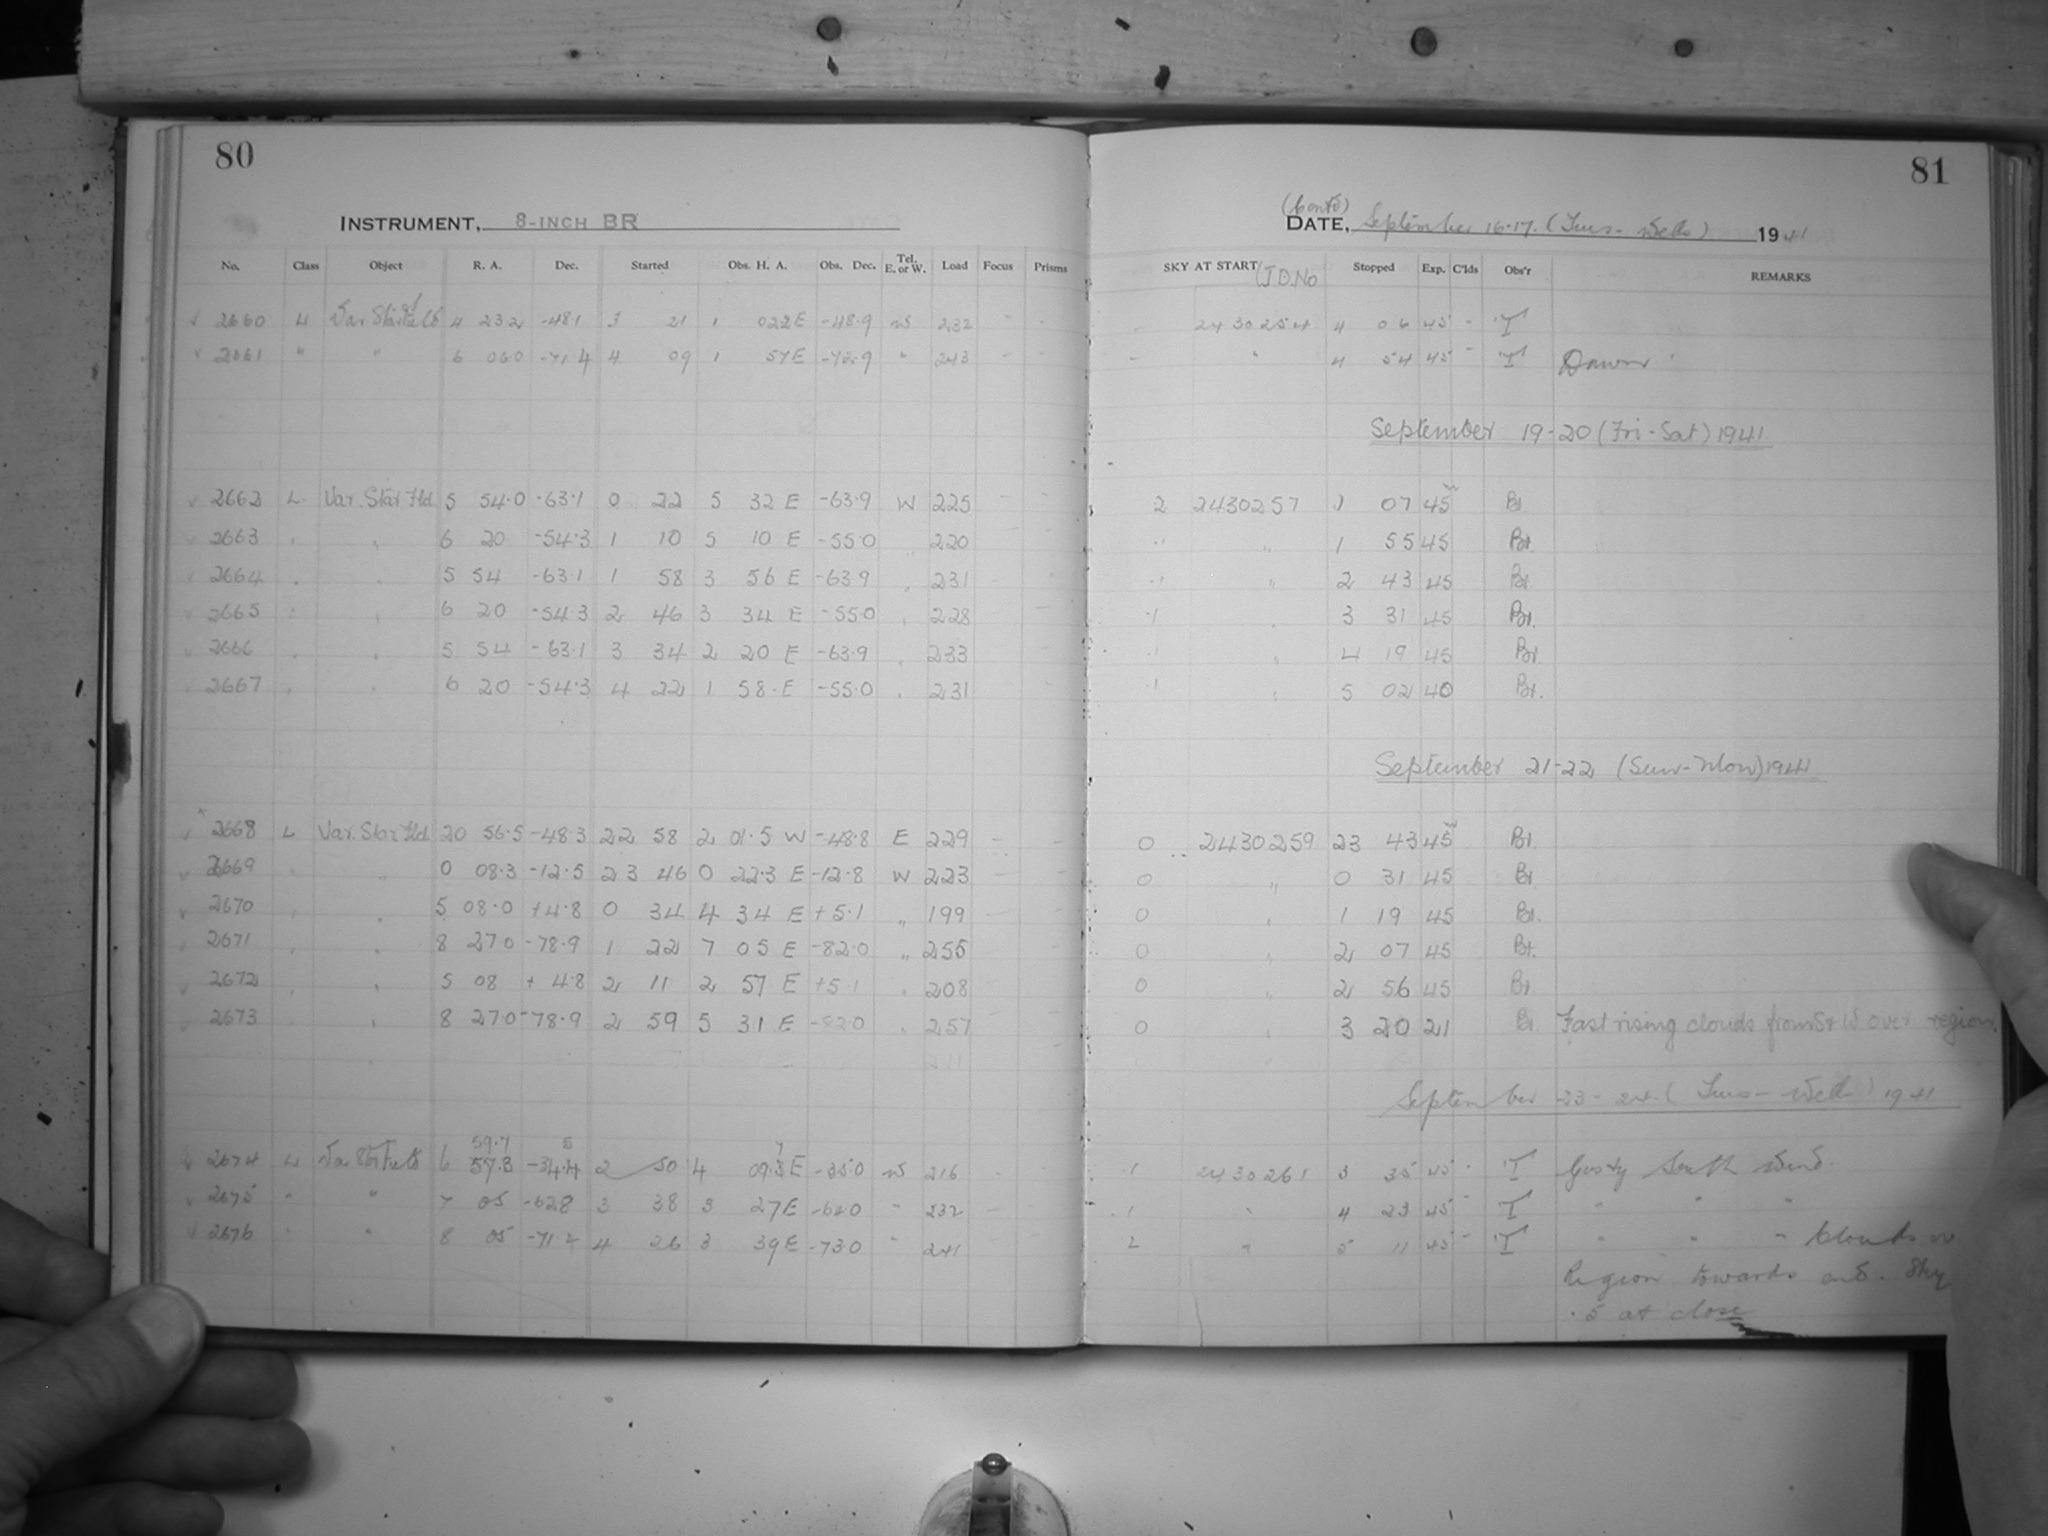 80
INSTRUMENT, 8-INCH BR
No. Class Object R. A. Dec. Started Obs. H. A. Obs. Dec. Tel. E. or W. Load Focus Prisms
2660 L Var Star Field 4 23.2 -48.1 3 21 1 02.2 E -48.9 W 232 - -
2661 " " 6 06.0 -71.4 4 09 1 57 E -72.9 " 243 - -
2662 L Var. Star Fld. 5 54.0 -63.1 0 22 5 32 E -63.9 W 225 - -
2663 " " 6 20 -54.3 1 10 5 10 E -55.0 " 220
2664 " " 5 54 -63.1 1 58 3 56 E -63.9 " 231
2665 " " 6 20 -54.3 2 46 3 34 E -55.0 " 228
2666 " " 5 54 -63.1 3 34 2 20 E -63.9 " 233
2667 " " 6 20 -54.3 4 22 1 58 E -55.0 " 231
2668 L Var. Star Fld. 20 56.5 -48.3 22 58 2 01.5 W -48.8 E 229 - -
2669 " 0 08.3 -12.5 23 46 0 22.3 E -12.8 W 223
2670 " " 5 08.0 +4.8 0 34 4 34 E +5.1 " 199
2671 " " 8 27.0 -78.9 1 22 7 05 E -82.0 " 255
2672 " " 5 08 +4.8 2 11 2 57 E +5.1 " 208
2673 " " 8 27.0 -78.9 2 59 5 31 E -82.0 " 257
59.7 5 7
2674 L Var Star Field 6 57.3 -34.4 2 50 4 09.3 E -35.0 W 216
2675 " " 7 05 -62.8 3 38 3 27 E -64.0 " 232
2676 " " 8 05 -71.2 4 26 3 39 E -73.0 " 241
81
(Contd)
DATE, September 16-17. (Tues - Wed) 1941
SKY AT START J.D. No Stopped Exp. C'lds Obs'r REMARKS
- 2430254 4 06 45 - T
- " 4 54 45 - T Dawn
September 19-20 (Fri-Sat) 1941
2 2430257 1 07 45 Bt.
.1 " 1 55 45 Bt.
.1 " 2 43 45 Bt.
.1 " 3 31 45 Bt.
.1 " 4 19 45 Bt.
.1 " 5 02 40 Bt.
September 21-22 (Sun-Mon) 1941
0 2430259 23 43 45 Bt.
0 " 0 31 45 Bt.
0 " 1 19 45 Bt.
0 " 2 07 45 Bt.
0 " 2 56 45 Bt.
0 " 3 20 21 Bt. Fast rising clouds from S & W over region.
September 23-24 (Tues - Wed) 1941
.1 2430261 3 35 45 - T Gusty South Wind.
.1 " 4 23 45 - T " " "
2 " 5 11 45 - T " " " Clouds
Region towards end. Sky
.5 at close